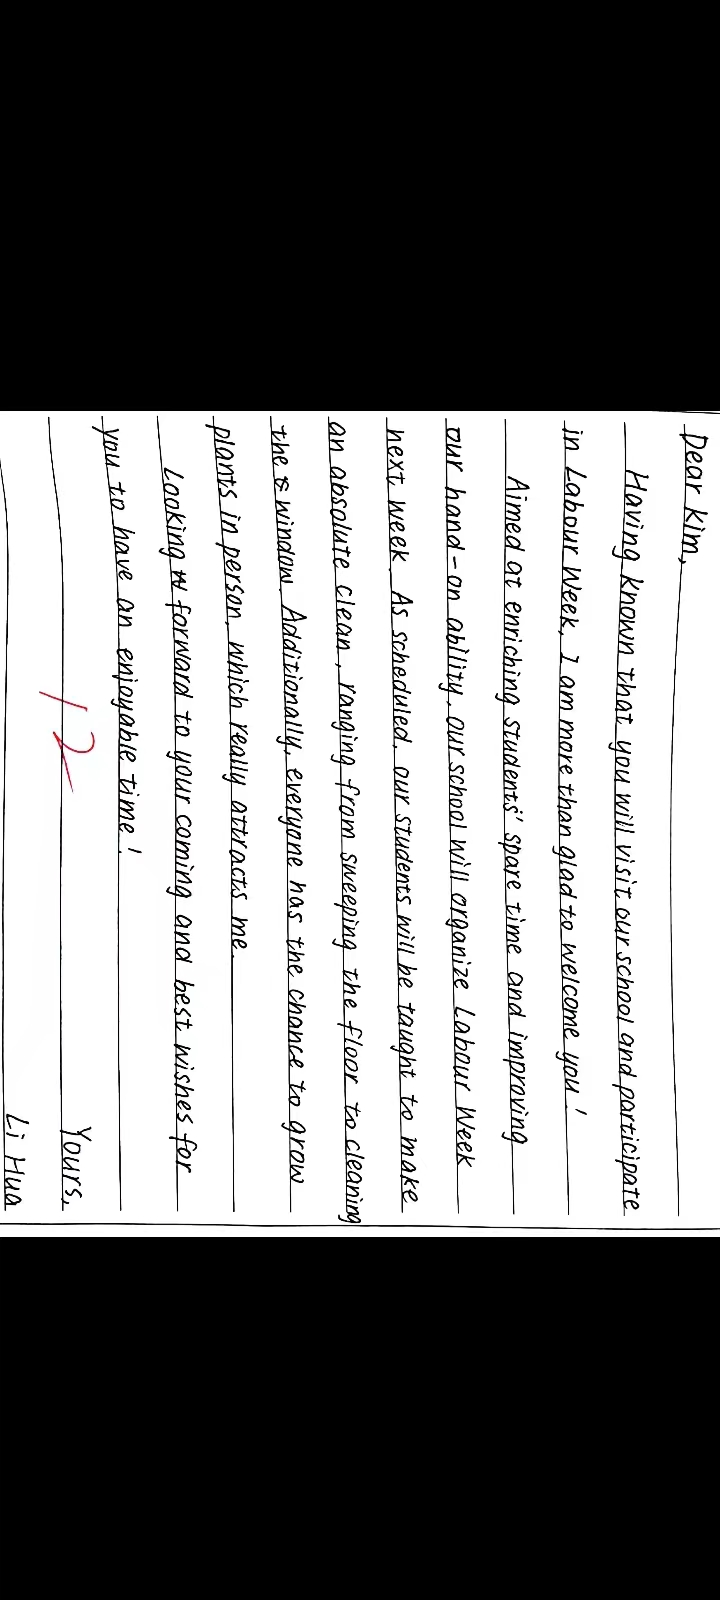 Dear Kim,
Having known that you will visit our school and participate
in Labour Week, I am more than glad to welcome you!
Aimed at enriching students' spare time and improving
our hand-on ability, our school will organize Labour Week
next week. As scheduled, our students will be taught to make
an absolute clean, ranging from sweeping the floor to cleaning
the window. Additionally, everyone has the chance to grow
plants in person, which really attracts me.
Looking forward to your coming and best wishes for
you to have an enjoyable time!
12
Yours,
Li Hua